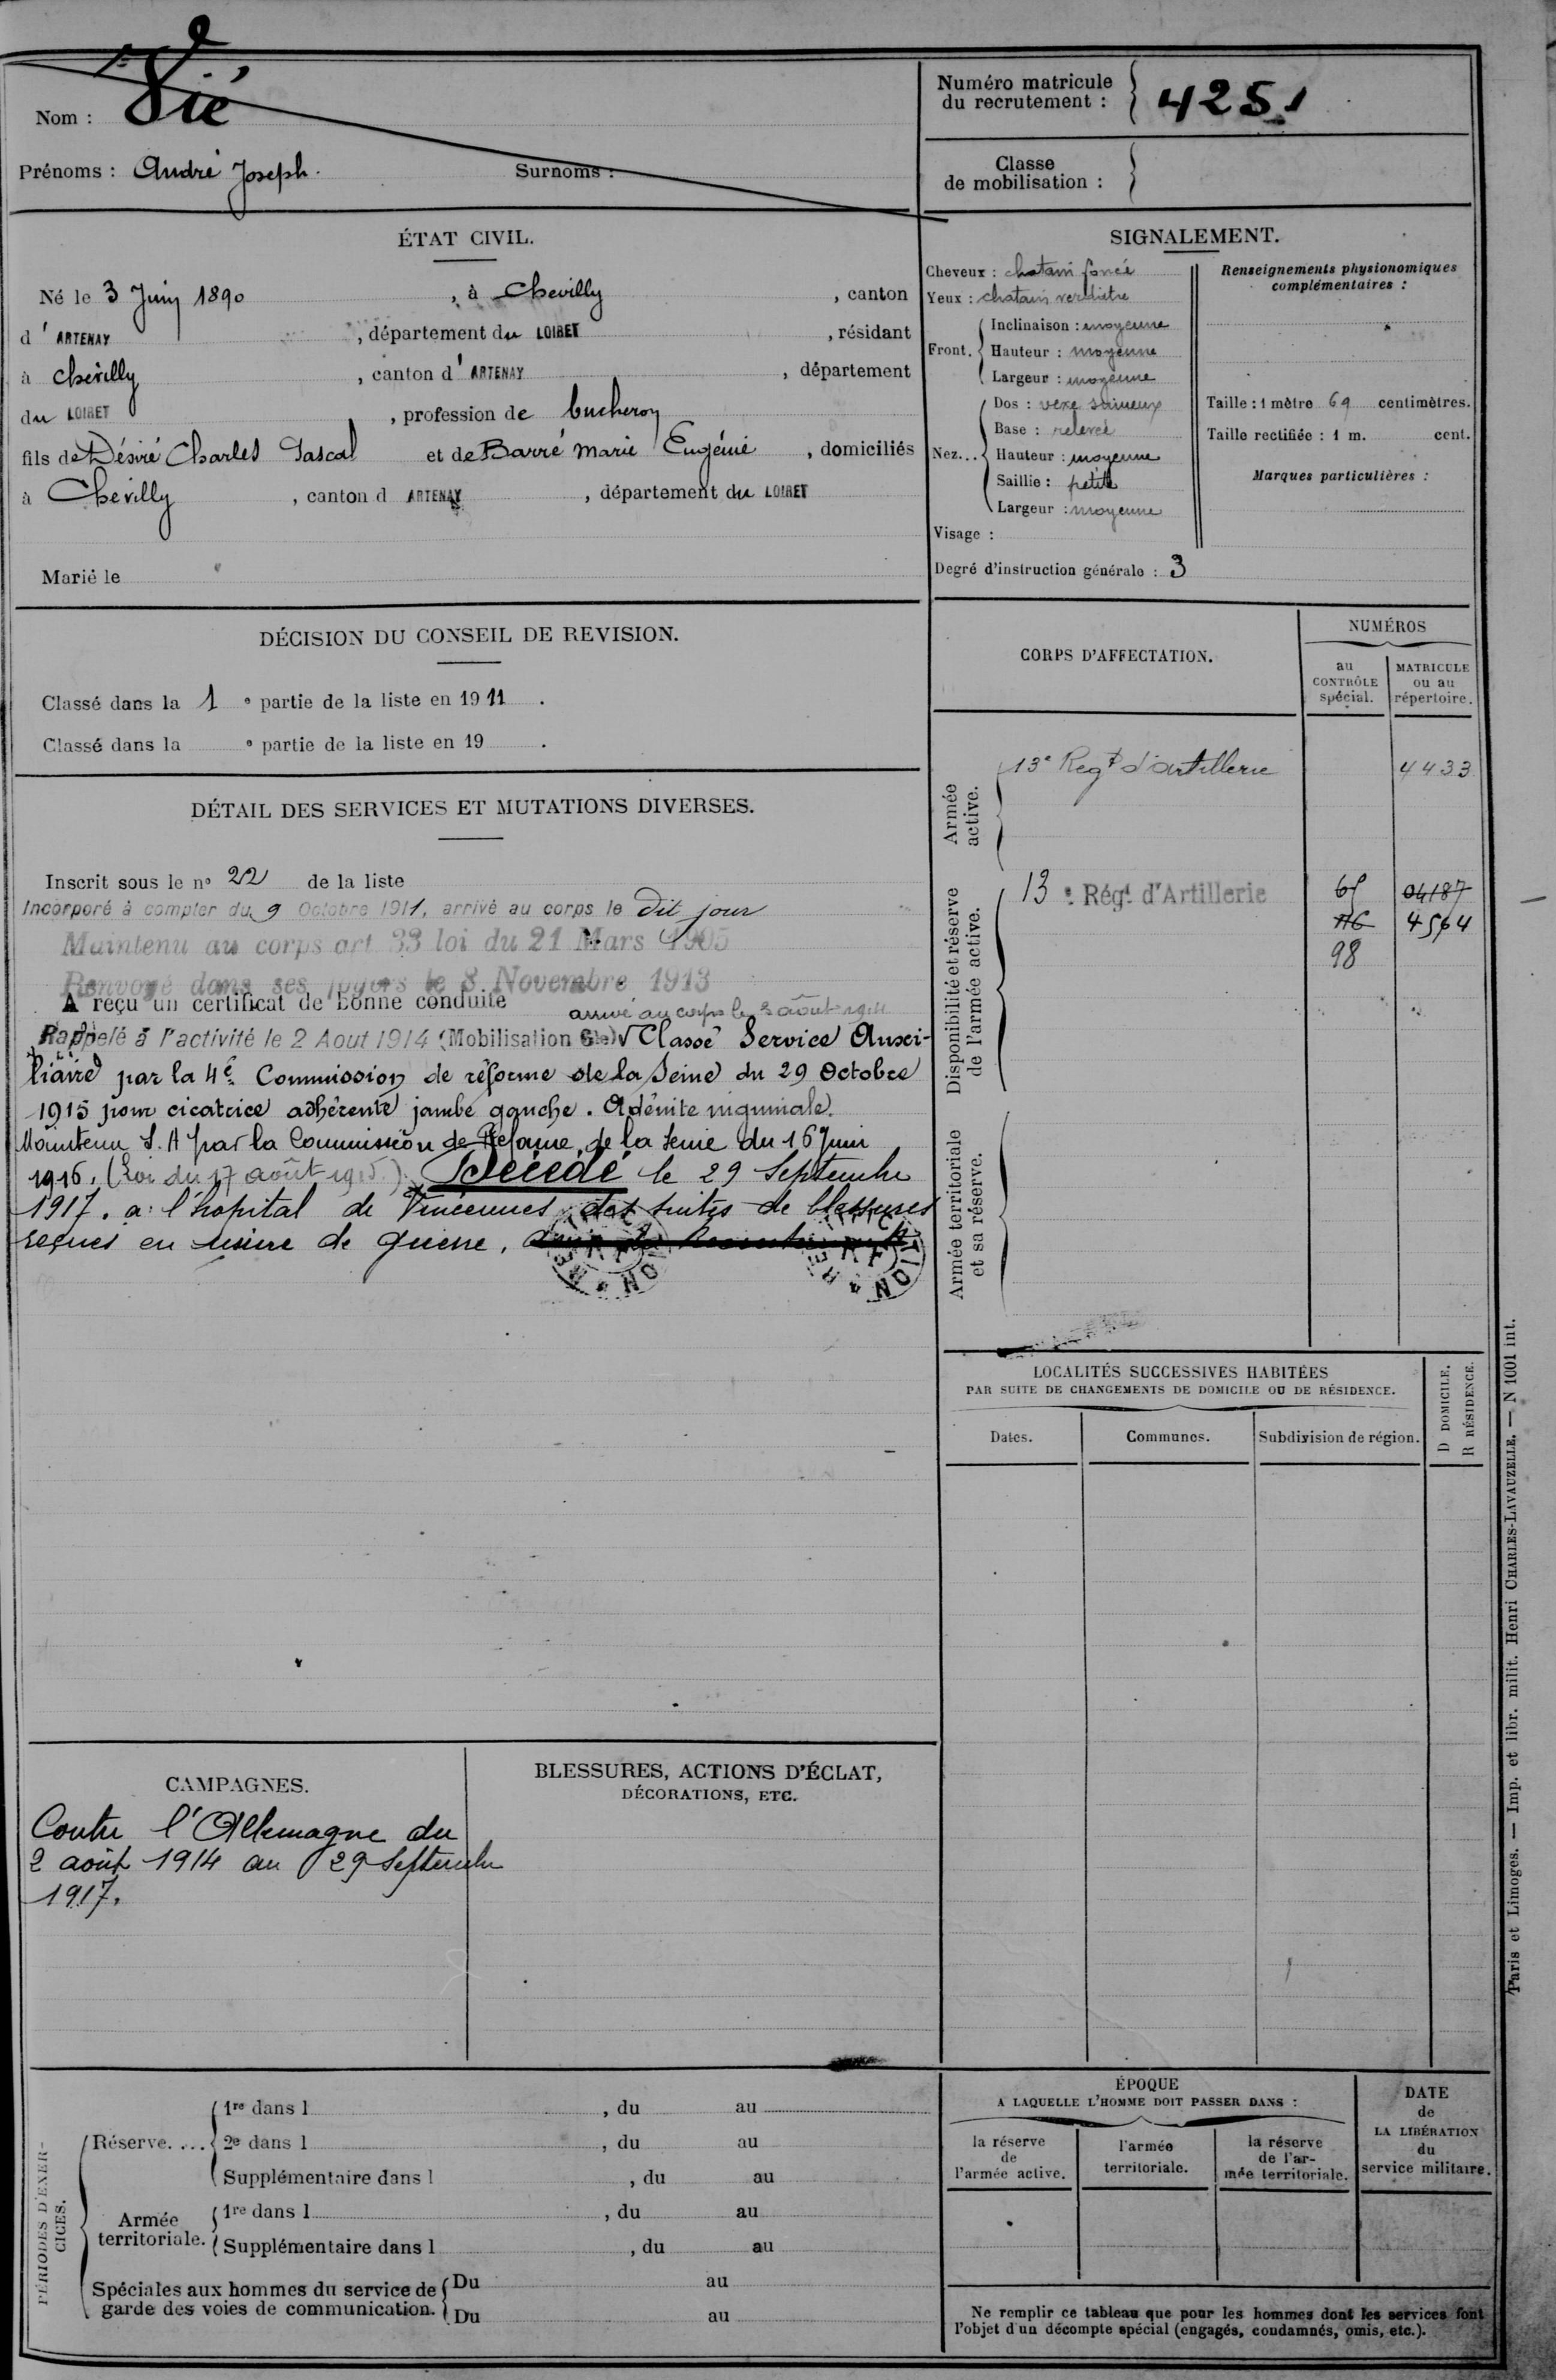 Nom : Vié
Prénoms : André Joseph. Surnoms :
Numéro matricule
du recrutement : 4251
Classe
de mobilisation :
ÉTAT CIVIL.
Né le 3 Juin 1890, à Chevilly, canton
d'ARTENAY, département du LOIRET, résidant
à Chevilly, canton d'ARTENAY, département
du LOIRET, profession de bucheron
fils de Désiré Charles Pascal et de Barré Marie Eugénie, domiciliés
à Chevilly, canton d ARTENAY, département du LOIRET
Marié le
SIGNALEMENT.
Cheveux : chatain foncé
Yeux : chatain verdâtre
Front. Inclinaison : moyenne
Hauteur : moyenne
Largeur : moyenne
Nez... Dos : vexe sinueux
Base : relevée
Hauteur : moyenne
Saillie : petite
Largeur : moyenne
Visage :
Degré d'instruction générale : 3
Renseignements physionomiques
complémentaires :
Taille : 1 mètre 69 centimètres.
Taille rectifiée : 1 m. cent.
Marques particulières :
DÉCISION DU CONSEIL DE REVISION.
Classé dans la 1e partie de la liste en 1911.
Classé dans la e partie de la liste en 19 .
DÉTAIL DES SERVICES ET MUTATIONS DIVERSES.
Inscrit sous le no 22 de la liste
Incorporé à compter du 9 Octobre 1911, arrivé au corps le dit jour
Maintenu au corps art 33 loi du 21 Mars 1905
Renvoyé dans ses foyers le 8 Novembre 1913
A reçu un certificat de bonne conduite
arrivé au corps le 3 août 1914
Rappelé à l'activité le 2 Aout 1914 (Mobilisation Gle) Classé Service Auxi-
liaire par la 4e Commission de réforme de la Seine du 29 Octobre
1915 pour cicatrice adhérente jambe gauche. Adénite inguinale.
Maintenu S. A par la Commission de Réforme de la Seine du 16 Juin
1916. (Loi du 17 août 1915). Décédé le 29 Septembre
1917. à l'hopital de Vincennes des suites de blessures
reçues en usine de guerre,
CORPS D'AFFECTATION.
NUMÉROS
au
CONTRÔLE
spécial.
MATRICULE
ou au
répertoire.
Armée
active.
13e Regt d'artillerie 4433
Disponibilité et réserve
de l'armée active.
13e Régt d'Artillerie 65 04187
4564
98
Armée territoriale
et sa réserve.
LOCALITÉS SUCCESSIVES HABITÉES
PAR SUITE DE CHANGEMENTS DE DOMICILE OU DE RÉSIDENCE.
Dates. Communes. Subdivision de région.
D DOMICILE.
R RÉSIDENCE.
CAMPAGNES.
Contre l'Allemagne du
2 août 1914 au 29 Septembre
1917.
BLESSURES, ACTIONS D'ÉCLAT,
DÉCORATIONS, ETC.
PÉRIODES D'EXER-
CICES.
Réserve.... 1re dans l , du au
2e dans l , du au
Supplémentaire dans l , du au
Armée
territoriale. 1re dans l , du au
Supplémentaire dans l , du au
Spéciales aux hommes du service de
garde des voies de communication. Du au
Du au
ÉPOQUE
A LAQUELLE L'HOMME DOIT PASSER DANS :
la réserve
de
l'armée active.
l'armée
territoriale.
la réserve
de l'ar-
mée territoriale.
DATE
de
LA LIBÉRATION
du
service militaire.
Ne remplir ce tableau que pour les hommes dont les services font
l'objet d'un décompte spécial (engagés, condamnés, omis, etc.).
Paris et Limoges. — Imp. et libr. milit. Henri CHARLES-LAVAUZELLE. — N 1001 int.